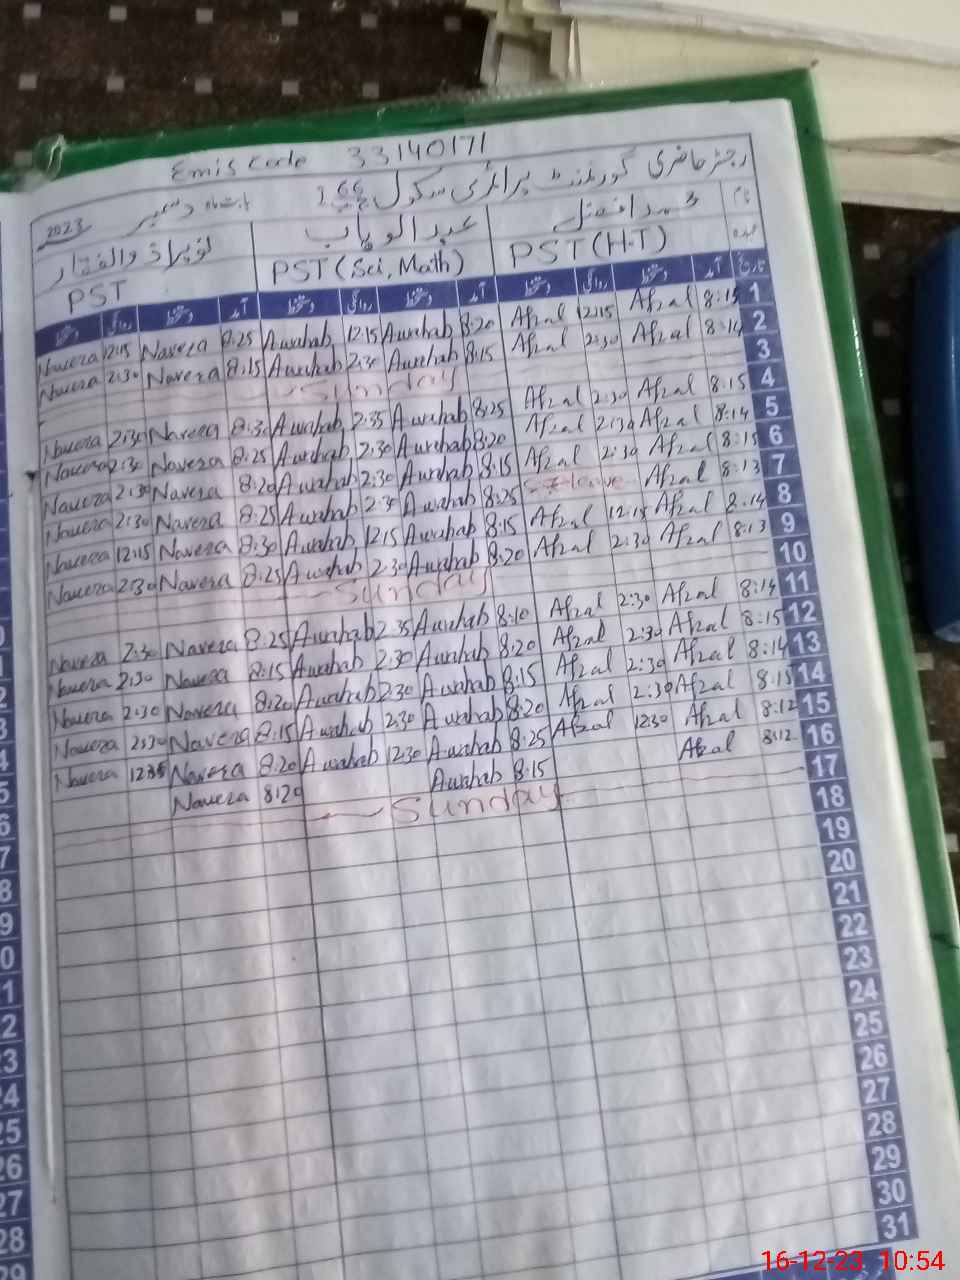 Emis Code 33140171
رجسٹر حاضری گورنمنٹ پرائمری سکول
بابت ماہ دسمبر 2023
نام محمد افضل عبدالوہاب
عہدہ PST (H.T) PST (Sci, Math) PST
تاریخ آمد دستخط روانگی دستخط آمد دستخط روانگی دستخط آمد دستخط روانگی دستخط
1 8:15 Afzal 12:15 Afzal 8:20 Awahab 12:15 Awahab 8:25 Navera 12:15 Navera
2 8:14 Afzal 2:30 Afzal 8:15 Awahab 2:30 Awahab 8:15 Navera 2:30 Navera
3 Sunday
4 8:15 Afzal 2:30 Afzal 8:25 Awahab 2:35 Awahab 8:30 Navera 2:30 Navera
5 8:14 Afzal 2:30 Afzal 8:20 Awahab 2:30 Awahab 8:25 Navera 2:30 Navera
6 8:15 Afzal 2:30 Afzal 8:15 Awahab 2:30 Awahab 8:20 Navera 2:30 Navera
7 8:13 Afzal leave 8:25 Awahab 2:30 Awahab 8:25 Navera 2:30 Navera
8 8:14 Afzal 12:15 Afzal 8:15 Awahab 12:15 Awahab 8:30 Navera 12:15 Navera
9 8:13 Afzal 2:30 Afzal 8:20 Awahab 2:30 Awahab 8:25 Navera 2:30 Navera
10 Sunday
11 8:14 Afzal 2:30 Afzal 8:10 Awahab 2:35 Awahab 8:25 Navera 2:30 Navera
12 8:15 Afzal 2:30 Afzal 8:20 Awahab 2:30 Awahab 8:15 Navera 2:30 Navera
13 8:14 Afzal 2:30 Afzal 8:15 Awahab 2:30 Awahab 8:20 Navera 2:30 Navera
14 8:15 Afzal 2:30 Afzal 8:20 Awahab 2:30 Awahab 8:15 Navera 2:30 Navera
15 8:12 Afzal 12:30 Afzal 8:25 Awahab 12:30 Awahab 8:20 Navera 12:35 Navera
16 8:12 Afzal 8:15 Awahab 8:20 Navera
17 Sunday
18
19
20
21
22
23
24
25
26
27
28
29
30
31
16-12-23 10:54